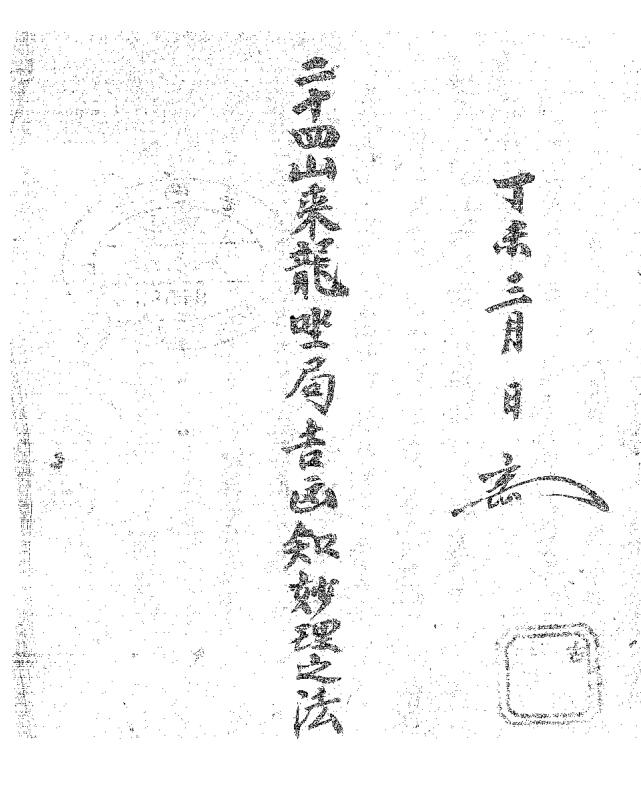 丁未三月 日
二十四山来龍坐局吉凶知妙理之法